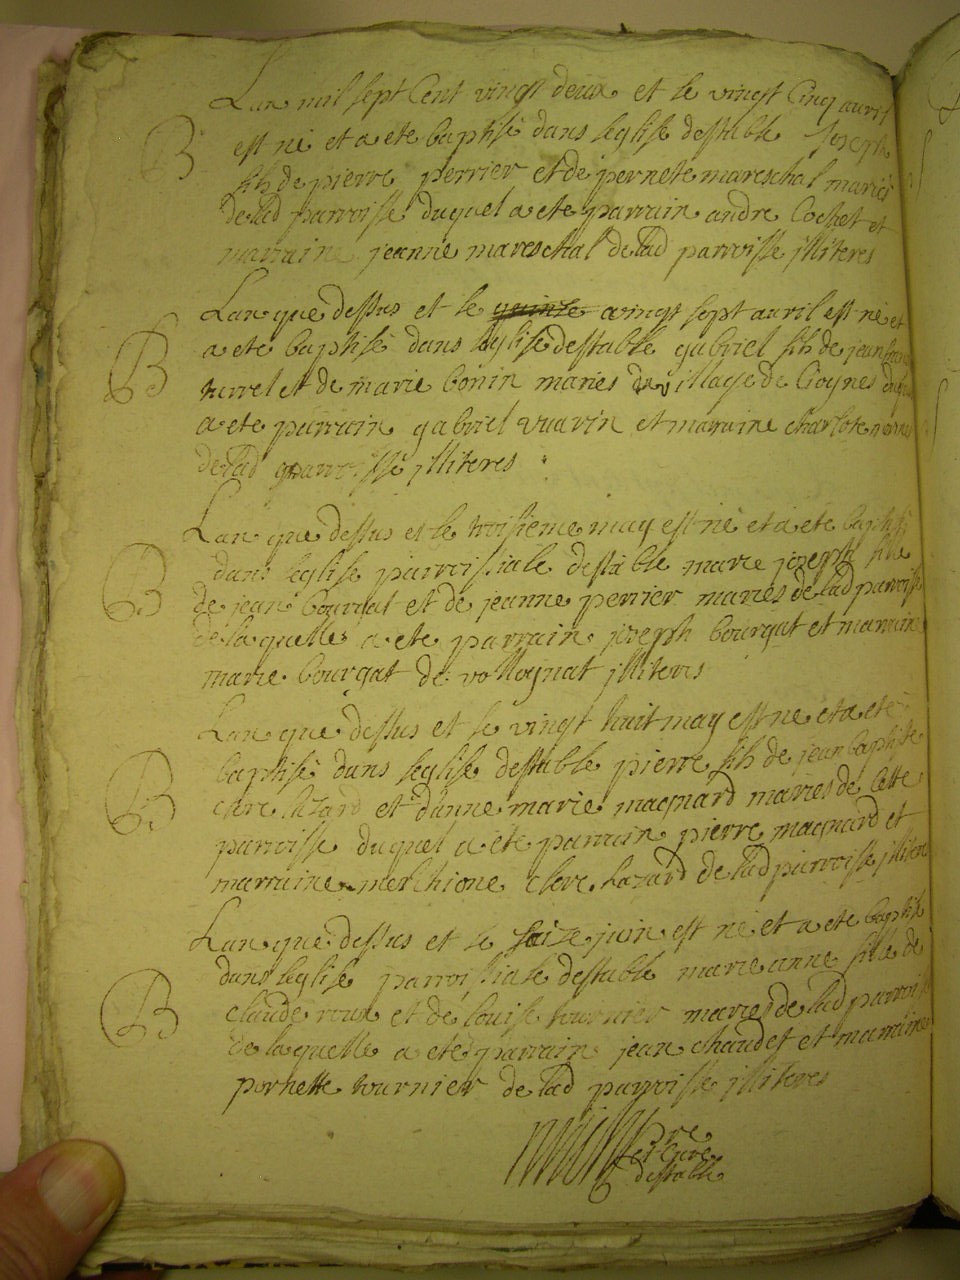 Lan mil sept Cent vingt deux et le vingt Cinq avril
B est né et a ete baptisé dans leglise destable Joseph
fils de pierre perrier et de pernete mareschal mariés
de lad parroisse duquel a ete parrain andre Cochet et
marraine jeanne mareschal de lad parroisse jlliteres
Lan que dessus et le quinze vingt sept avril est né et
B a ete baptisé dans leglise destable gabriel fils de jean
turrel et de marie bonin mariés du village de
a ete parrain gabriel vuarin et marraine charlote
de lad parroisse jlliteres
Lan que dessus et le troisieme may est né et a ete baptisé
B dans leglise parroissiale destable marie joseph fille
de jean bourgat et de jeanne perrier mariés de lad parroisse
de laquelle a ete parrain joseph bourgat et marraine
marie bourgat de vollognat jlliteres
Lan que dessus et le vingt huit may est ne et a eté
B baptisé dans leglise destable pierre fils de jean baptiste
clerc lazard et danne marie magnard mariés de Cette
parroisse duquel a ete parrain pierre magnard et
marraine merchione clerc Lazard de lad parroisse
Lan que dessus et le seize juin est né et a ete baptisé
B dans leglise parroissiale destable marie anne fille de
claude roux et de louise tournier mariés de lad parroisse
de laquelle a eté parrain jean chaudet et marraine
pernette tournier de lad parroisse jlliteres
pre
et Curé
destable